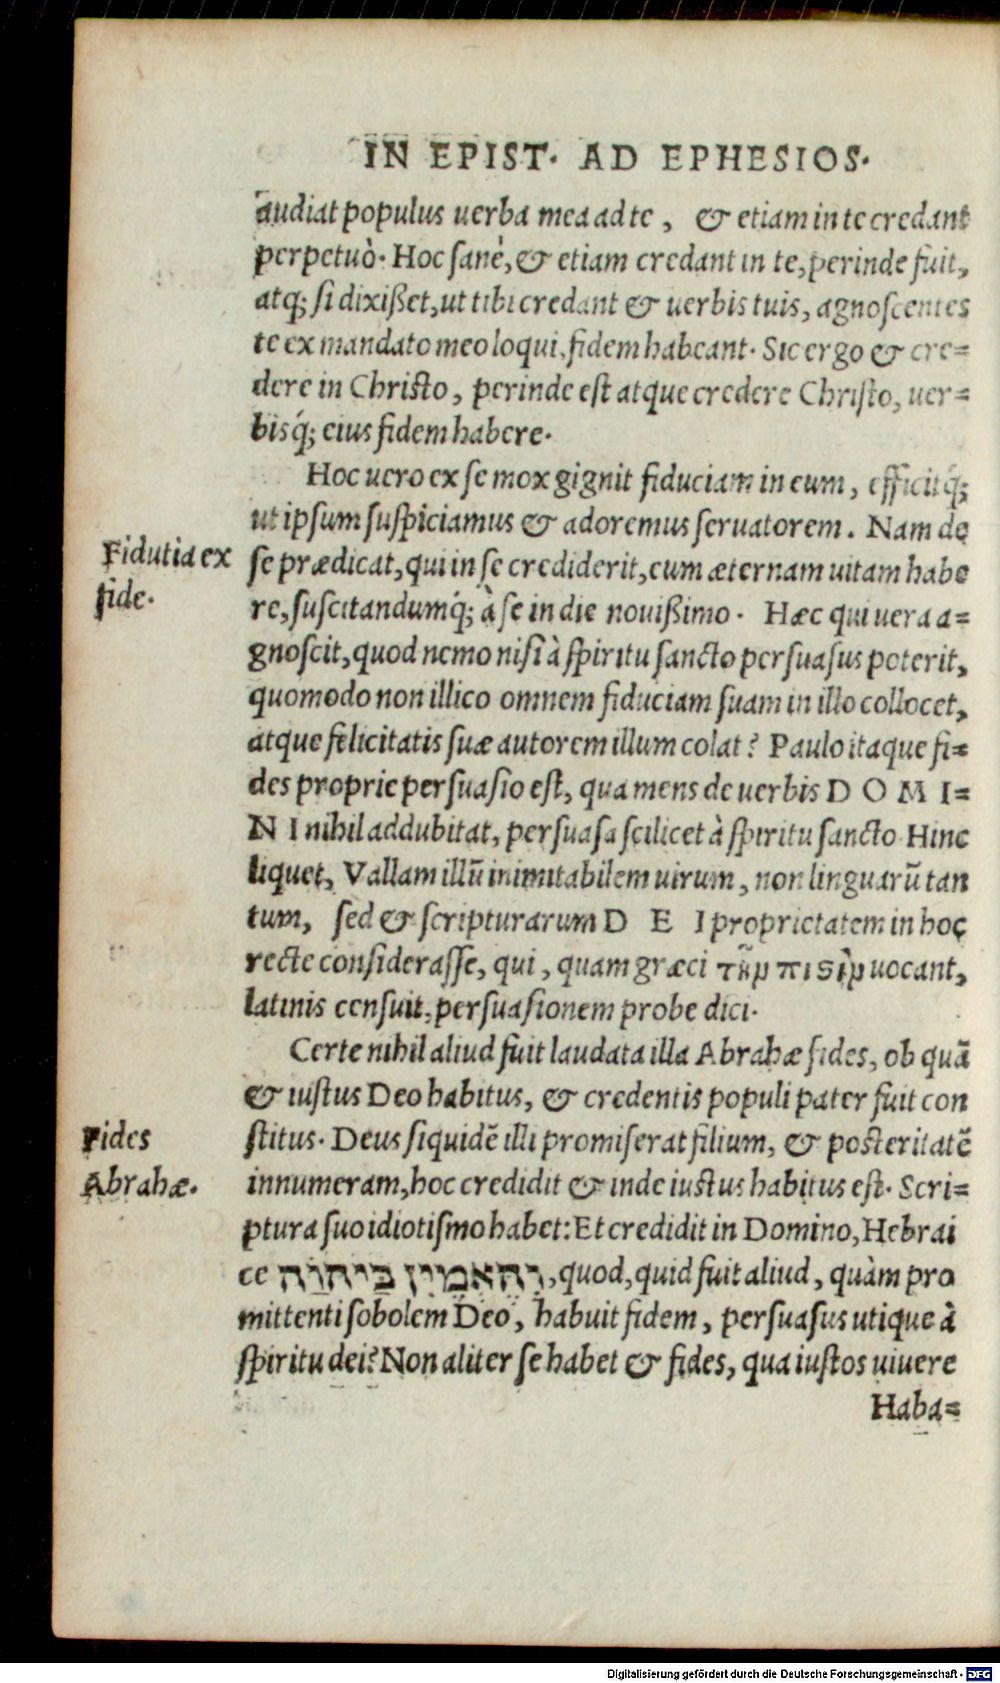 IN EPIST. AD EPHESIOS.
audiat populus uerba mea ad te, & etiam in te credant
perpetuò. Hoc sanè, & etiam credant in te, perinde fuit,
atq; si dixißet, ut tibi credant & uerbis tuis, agnoscentes
te ex mandato meo loqui, fidem habeant. Sic ergo & cre=
dere in Christo, perinde est atque credere Christo, uer=
bisq́; eius fidem habere.
Hoc uero ex se mox gignit fiduciam in eum, efficitq́;
ut ipsum suspiciamus & adoremus seruatorem. Nam de
Fidutia ex
se prædicat, qui in se crediderit, eum æternam uitam habe
fide.
re, suscitandumq́; à se in die nouißimo. Hæc qui uera a=
gnoscit, quod nemo nisi à spiritu sancto persuasus poterit,
quomodo non illico omnem fiduciam suam in illo collocet,
atque felicitatis suæ autorem illum colat? Paulo itaque fi=
des proprie persuasio est, qua mens de uerbis D O M I=
N I nihil addubitat, persuasa scilicet à spiritu sancto Hinc
liquet, Vallam illũ inimitabilem uirum, non linguarũ tan
tum, sed & scripturarum D E I proprietatem in hoc
recte considerasse, qui, quam græci τὴν πίστιν uocant,
latinis censuit, persuasionem probe dici.
Certe nihil aliud fuit laudata illa Abrahæ fides, ob quã
& iustus Deo habitus, & credentis populi pater fuit con
Fides
stitus. Deus siquidẽ illi promiserat filium, & posteritatẽ
Abrahæ.
innumeram, hoc credidit & inde iustus habitus est. Scri=
ptura suo idiotismo habet: Et credidit in Domino, Hebrai
ce וְהֶאֱמִין בַּיהוָֹה, quod, quid fuit aliud, quàm pro
mittenti sobolem Deo, habuit fidem, persuasus utique à
spiritu dei? Non aliter se habet & fides, qua iustos uiuere
Haba=
Digitalisierung gefördert durch die Deutsche Forschungsgemeinschaft - DFG